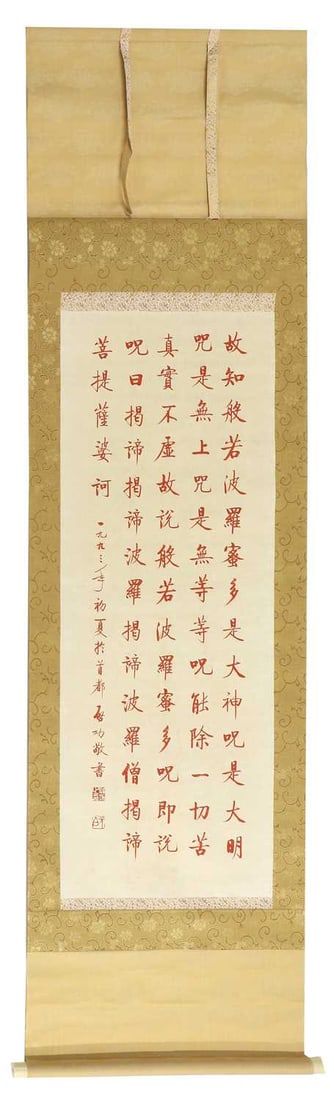 故知般若波羅蜜多是大神呪是大明
咒是無上咒是無等等呪能除一切苦
真實不虛故說般若波羅蜜多呪即說
呪曰揭諦揭諦波羅揭諦波羅僧揭諦
菩提薩婆訶
一九九三年初夏於首都啟功敬書